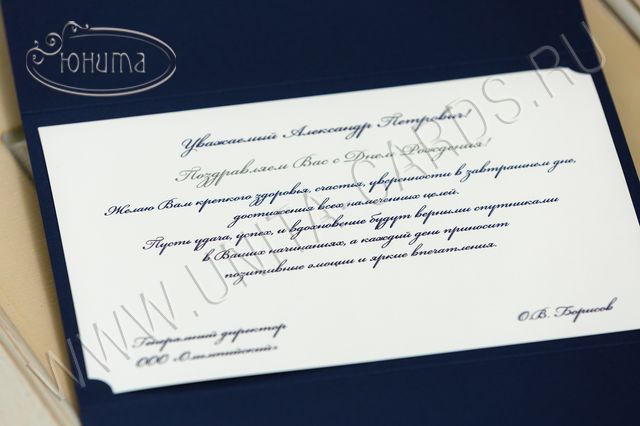 Юнита
Уважаемый Александр Петрович!
Поздравляем Вас с Днем Рождения!
Желаю Вам крепкого здоровья, счастья, уверенности в завтрашнем дне,
достижения всех намеченных целей.
Пусть удача, успех, и вдохновение будут верными спутниками
в Ваших начинаниях, а каждый день приносит
позитивные эмоции и яркие впечатления.
Генеральный директор
ООО «Олимпийский»
О.В. Борисов
WWW.UNITA-CARDS.RU